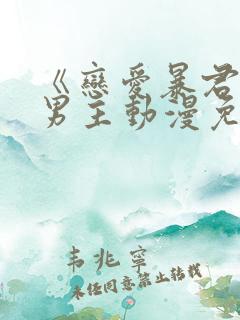 《戀愛暴君
男主動漫免
韦兆寧
未经同意禁止转载